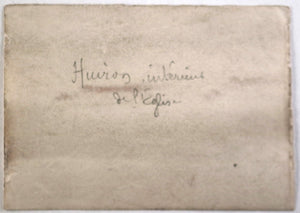 Huiron, intérieur
de l'Église